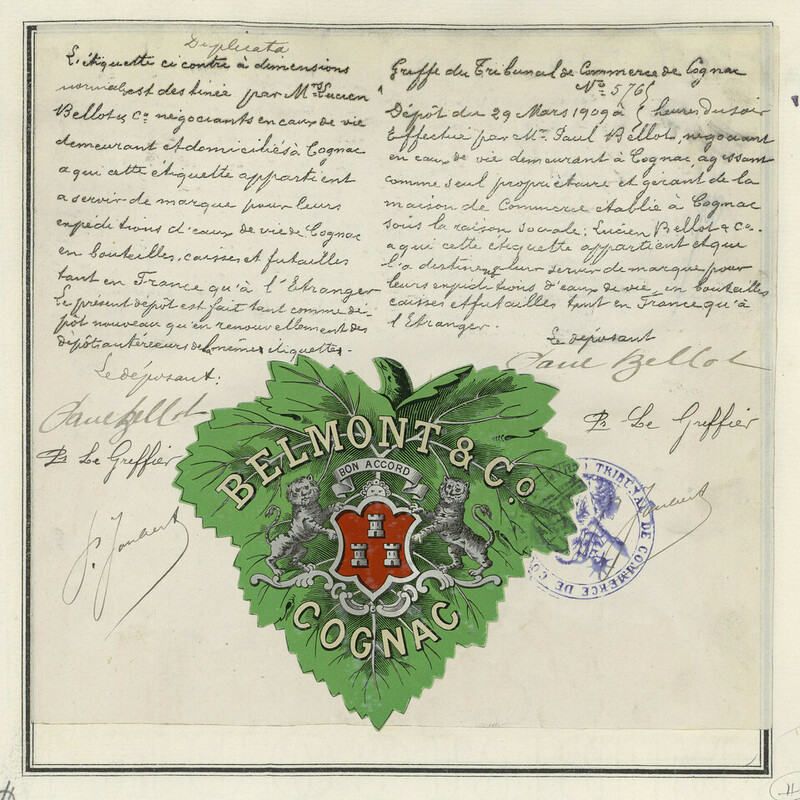 Duplicata
L'étiquette ci contre à dimensions
normales est destinée par Mrs Lucien
Bellot & Co négociants en eaux de vie
demeurant et domiciliés à Cognac
a qui cette étiquette appartient
a servir de marque pour leurs
expéditions d'eaux de vie de Cognac
en bouteilles, caisses et futailles
tant en France qu'à l'Etranger
Le présent dépôt est fait tant comme dé-
pôt nouveau qu'en renouvellement des
dépôts antérieurs de mêmes étiquettes.
Le déposant:
Paul Bellot
Pr Le Greffier
Greffe du Tribunal de Commerce de Cognac
No 576
Dépôt du 29 Mars 1909 à heures du soir
Effectué par Mr. Paul Bellot, négociant
en eaux de vie demeurant à Cognac, agissant
comme seul propriétaire et gérant de la
maison de Commerce établie à Cognac
sous la raison sociale: Lucien Bellot & Co.
a qui cette étiquette appartient et qui
l'a destine leur servir de marque pour
leurs expéditions d'eaux de vie, en bouteilles
caisses et futailles tant en France qu'à
l'Etranger.
Le déposant
Paul Bellot
Pr Le Greffier
BELMONT & Co.
BON ACCORD
COGNAC
TRIBUNAL DE COMMERCE DE CO